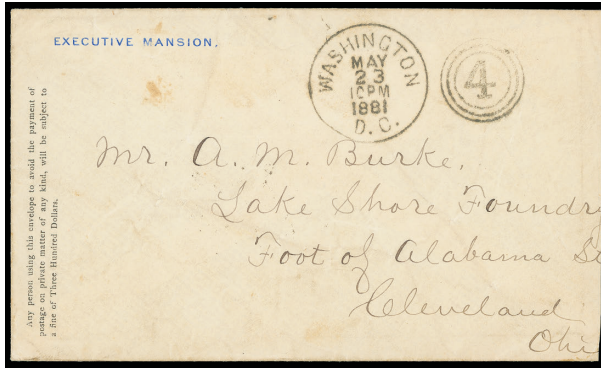 EXECUTIVE MANSION.
WASHINGTON
MAY
23
10PM
1881
D. C.
4
Any person using this envelope to avoid the payment of
postage on private matter of any kind, will be subject to
a fine of Three Hundred Dollars.
Mr. A. M. Burke,
Lake Shore Foundry
Foot of Alabama St
Cleveland
Ohi